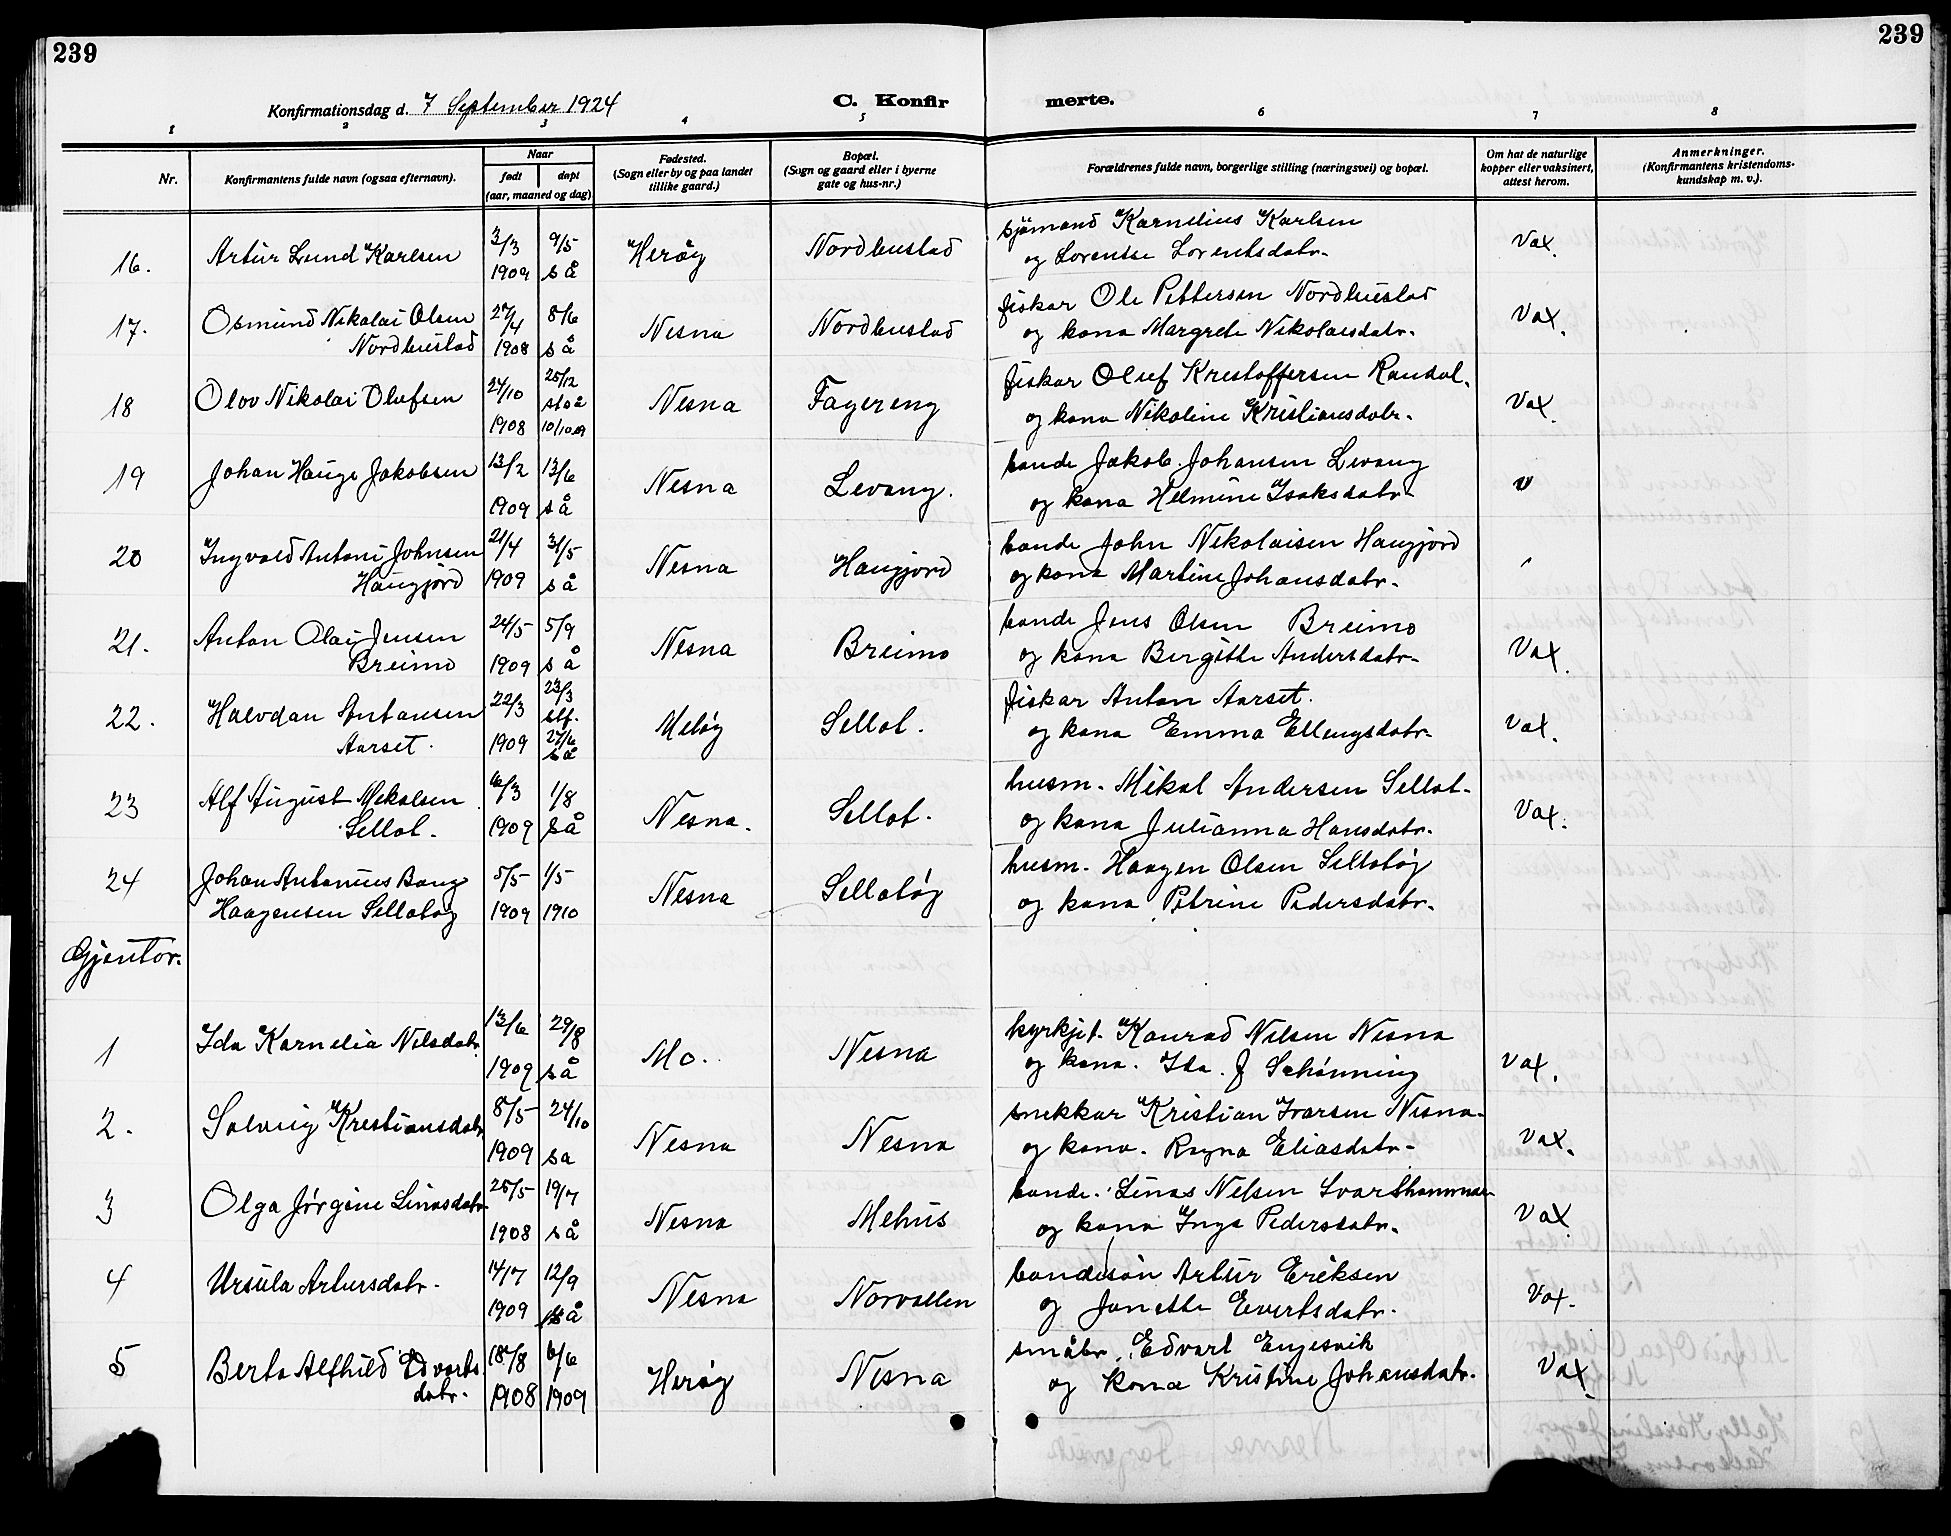 239
239
Konfirmationsdag d. 7 September 1924
C. Konfir
merte.
1 2 3 4 5 6 7 8
Nr.
Konfirmantens fulde navn (ogsaa efternavn).
Naar
født
døpt
(aar, maaned og dag)
Fødested.
(Sogn eller by og paa landet
tillike gaard.)
Bopæl.
(Sogn og gaard eller i byerne
gate og hus-nr.)
Forældrenes fulde navn, borgerlige stilling (næringsvei) og bopæl.
Om hat de naturlige
kopper eller vaksinert,
attest herom.
Anmerkninger.
(Konfirmantens kristendoms-
kundskap m. v.).
16. Artur Lund Karlsen 3/3 1909 9/5 s å Herøy Nordbustad
sjømand Karnelius Karlsen
og Lorentse Lorentsdotr.
Vax.
17. Osmund Nikolai Olsen
Nordbustad 27/4 1908 8/6 s å Nesna Nordbustad
fiskar Ole Pettersen Nordbustad
og kona Margrete Nikolaisdotr.
Vax.
18 Olov Nikolai Olufsen 24/10 1908 25/12 st. å 10/10 09 Nesna Fagereng
fiskar Oluf Kristoffersen Randal.
og kona Nikoline Kristiansdotr.
Vax.
19 Johan Hauge Jakobsen 13/2 1909 13/6 s å Nesna Levang.
bonde Jakob Johansen Levang
og kona Helmine Isaksdotr.
v
20 Ingvald Antoni Johnsen
Haugjord 21/4 1909 31/5 s å Nesna Haugjord
bonde John Nikolaisen Haugjord
og kona Martine Johansdotr.
21. Anton Olai Jensen
Breimo 24/5 1909 5/9 s å Nesna Breimo
bonde Jens Olsen Breimo
og kona Bergitte Andersdotr.
Vax.
22. Halvdan Antonsen
Aarset. 22/3 1909 23/3 stf. 27/6 s å Meløy Sellot.
fiskar Anton Aarset.
og kona Emma Ellengsdotr.
Vax.
23 Alf August Mekalsen
Sellot. 16/3 1909 1/8 s å Nesna. Sellot.
husm. Mikal Andersen Sellot.
og kona Julianna Hansdotr.
Vax.
24 Johan Antonius Bang
Haagensen Sellotøy 5/5 1909 1/5 1910 Nesna Sellotøy
husm. Haagen Olsen Sellotøy
og kona Petrine Pedersdotr.
Gjentor.
1 Ida Karnelia Nilsdotr. 13/6 1909 29/8 s å Mo. Nesna
kyrkjet. Konrad Nilsen Nesna
og kona. Ida. J Schønning
Vax.
2. Solveig Krestiansdotr 8/5 1909 24/10 s a Nesna Nesna
snekkar Kristian Ivarsen Nesna.
og kona. Ragna Eliasdotr.
Vax.
3 Olga Jørgine Linasdotr 25/5 1908 19/7 s å Nesna Mehus
bonde. Linas Nelsen Svarthammar
og kona Inga Pedersdotr.
Vax
4 Ursula Artursdotr. 14/7 1909 12/9 s å Nesna Norvallen
bondesøn Artur Eriksen
og Janette Evertsdotr.
Vax.
5 Berta Alfhild Edvarts
dotr. 18/8 1908 6/6 1909 Herøy Nesna
småbr. Edvart Engesvik
og kona Kristine Johansdotr.
Vax.